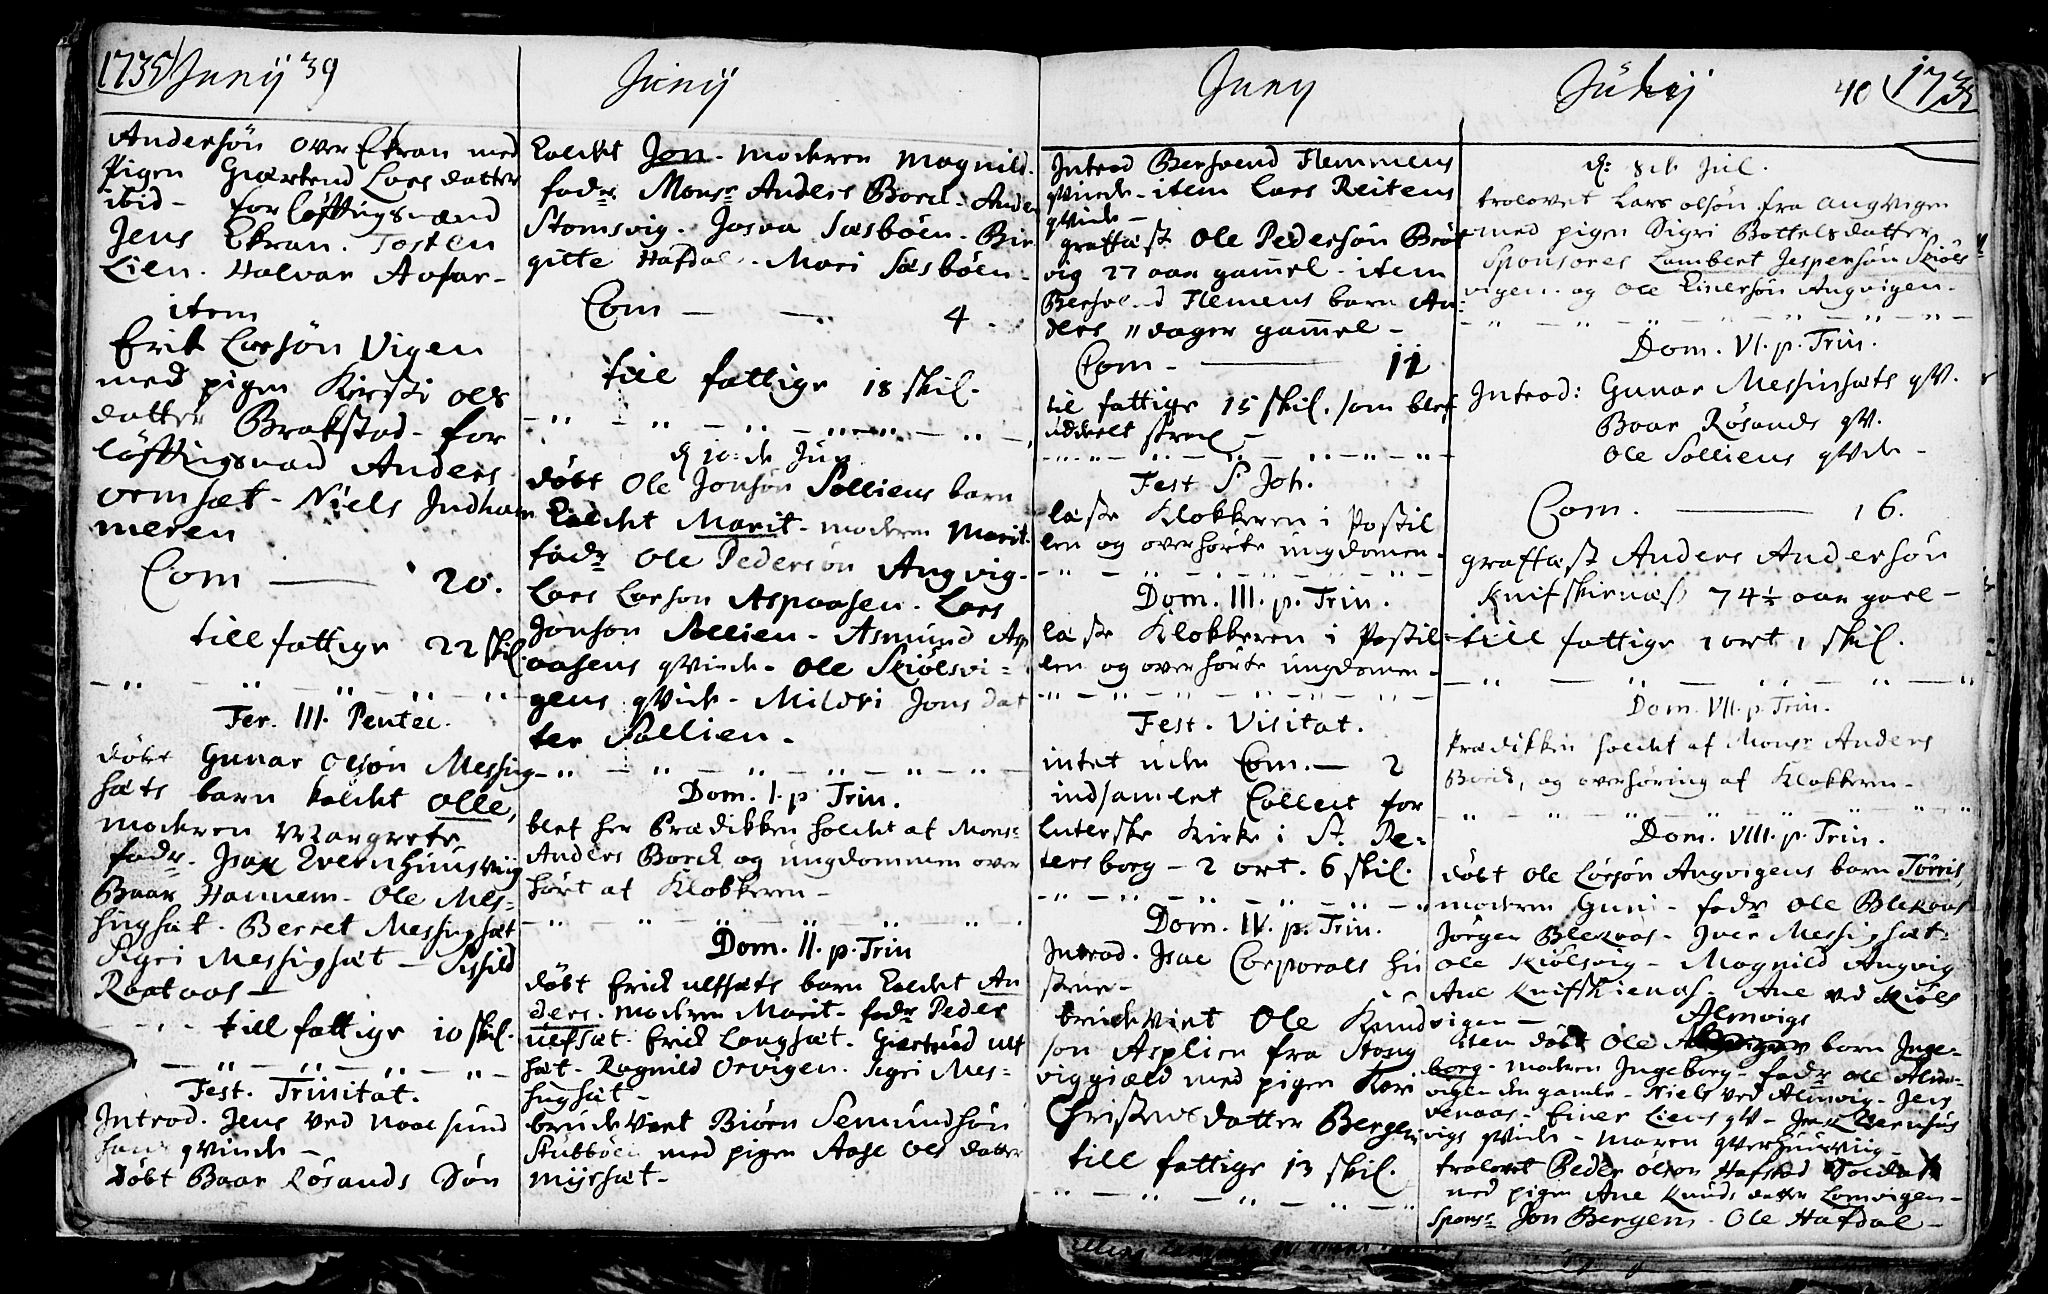 1735 Junij 39
Andersön over Ekran med
Pigen Giærtrud Lars datter
ibid - for löftingsmænd
Jens Ekran. Tosten
Lien. Halvar Aafar-
item
Erik Larsön Vigen
med pigen Kirsti Ols
datter Brakstad - for
löftingsmænd Anders
ormsæt - Niels Indham
meren
Com — 20.
till fattige 22 skil.
Fer. III. Pentec.
döbt Gunar Olsön Messing
sæts barn kaldet Olle,
moderen Margrete
fadr. Isax Evernhuusviig
Baar Hannem - Ole Mes-
singsæt - Berret Messingsæt
Sigri Messingsæt - Sissild
Raataas -
till fattige 10 skil.
Fest. Trinitat.
Introd. Jens ved Naaesund
hans qvinde -
döbt Baar Rösands Sön
Junij
kaldet Jon - moderen Magnild.
fadr. Monsr. Anders Borck - Anders
Stomsvig. Josva Sæsböen - Bir
gitte Hafdal - Mari Sæsböen -
Com — 4.
till fattige 18 skil.
d. 10de Jun.
döbt Ole Jonsön Solliens barn
kaldet Marit - moderen Marit.
fadr Ole Pedersön Angvig -
Lars Larson Aspaasen. Lars
Jonson Sollien - Asmund Asp
aasens qvinde - Ole Skiölsvi-
gens qvinde - Mildri Jons dat
ter Sollien -
Dom. I. p Trin.
blef her Prædikken holdet af Monsr
Anders Borck og ungdommen over
hört af Klokkeren -
Dom. II. p. Trin
döbt Erick ulfsæts barn kaldet An
ders - moderen Marit - fadr Peder
ulfsæt. Erick Langsæt. Giertrud ulf
sæt - Ragnild Orvigen. Sigri Mes-
singsæt -
brudeviet Biörn Semundsön
Stubböen med pigen Aase Ols datter
myrsæt -
Juny
Introd Bersvend Flemmens
qvinde - item Lars Reitens
qvinde -
graffæst Ole Pedersön Bröt
vig 27 aar gamel - item
Bersvend Flemens barn An-
ders 11 dager gammel -
Com - — 11
til fattige 15 skil. som blef
uddeelt strax -
Fest S. Joh.
læste Klokkeren i Postil
len og overhörte ungdomen -
Dom. III. p. Trin.
læste Klokkeren i Postil-
len og overhörte ungdomen -
Fest. Visitat.
intet uden Com. — 2
indsamlet Collect for
luterske Kirke i St. Pe-
tersborg - 2 ort. 6 skil.
Dom. IV. p. Trin.
Introd. Isac Corporals hu
strue -
brudeviet Ole Knud
sön Asplien fra Stong
viggiæld med pigen Kari
Christens datter Bergem
till fattige 13 skil.
Julij 40 1735
d: 8de Jul.
trolovet Lars olsön fra Angvigen
med pigen Sigri Bottels datter
Sponsores Lambert Jespersön Skiöls
vigen. og Ole Einersön Angvigen -
Dom. VI. p. Trin.
Introd: Gunar Messinsæts qv.
Baar Rösands qv.
Ole Solliens qvinde -
Com. — 16.
graffæst Anders Andersön
Knifskienæs 74½ aar gael -
till fattige 1 ort 1 skil.
Dom. VII. p. Trin.
prædikken holdet af Monsr Anders
Borck, og overhöring af Klokkeren -
Dom. VIII. p. Trin.
döbt Ole Larsön Angvigens barn Törris,
moderen Guni - fadr Ole Blekaas
Jörgen Blekaas - Iver Messingsæt -
Ole Skiölsvig - Magnild Angvig
Ane Knifskienæs. Ane ved Skiöls
vigen -
Almvigs
item döbt Ole barn Inge-
borg - modren Ingeborg - fadr Ole Alm-
vigen den gamle - Niels ved Almvig - Jens
venaas - Einer Liens qv - Isax Evernhus
vigs qvinde - maren qverhuusviig -
trolovet Peder Olson Hafstad Soldat
med pigen Ane Knuds datter Lomvigen -
Sponsr Jon Bergem - Ole Hafdal -